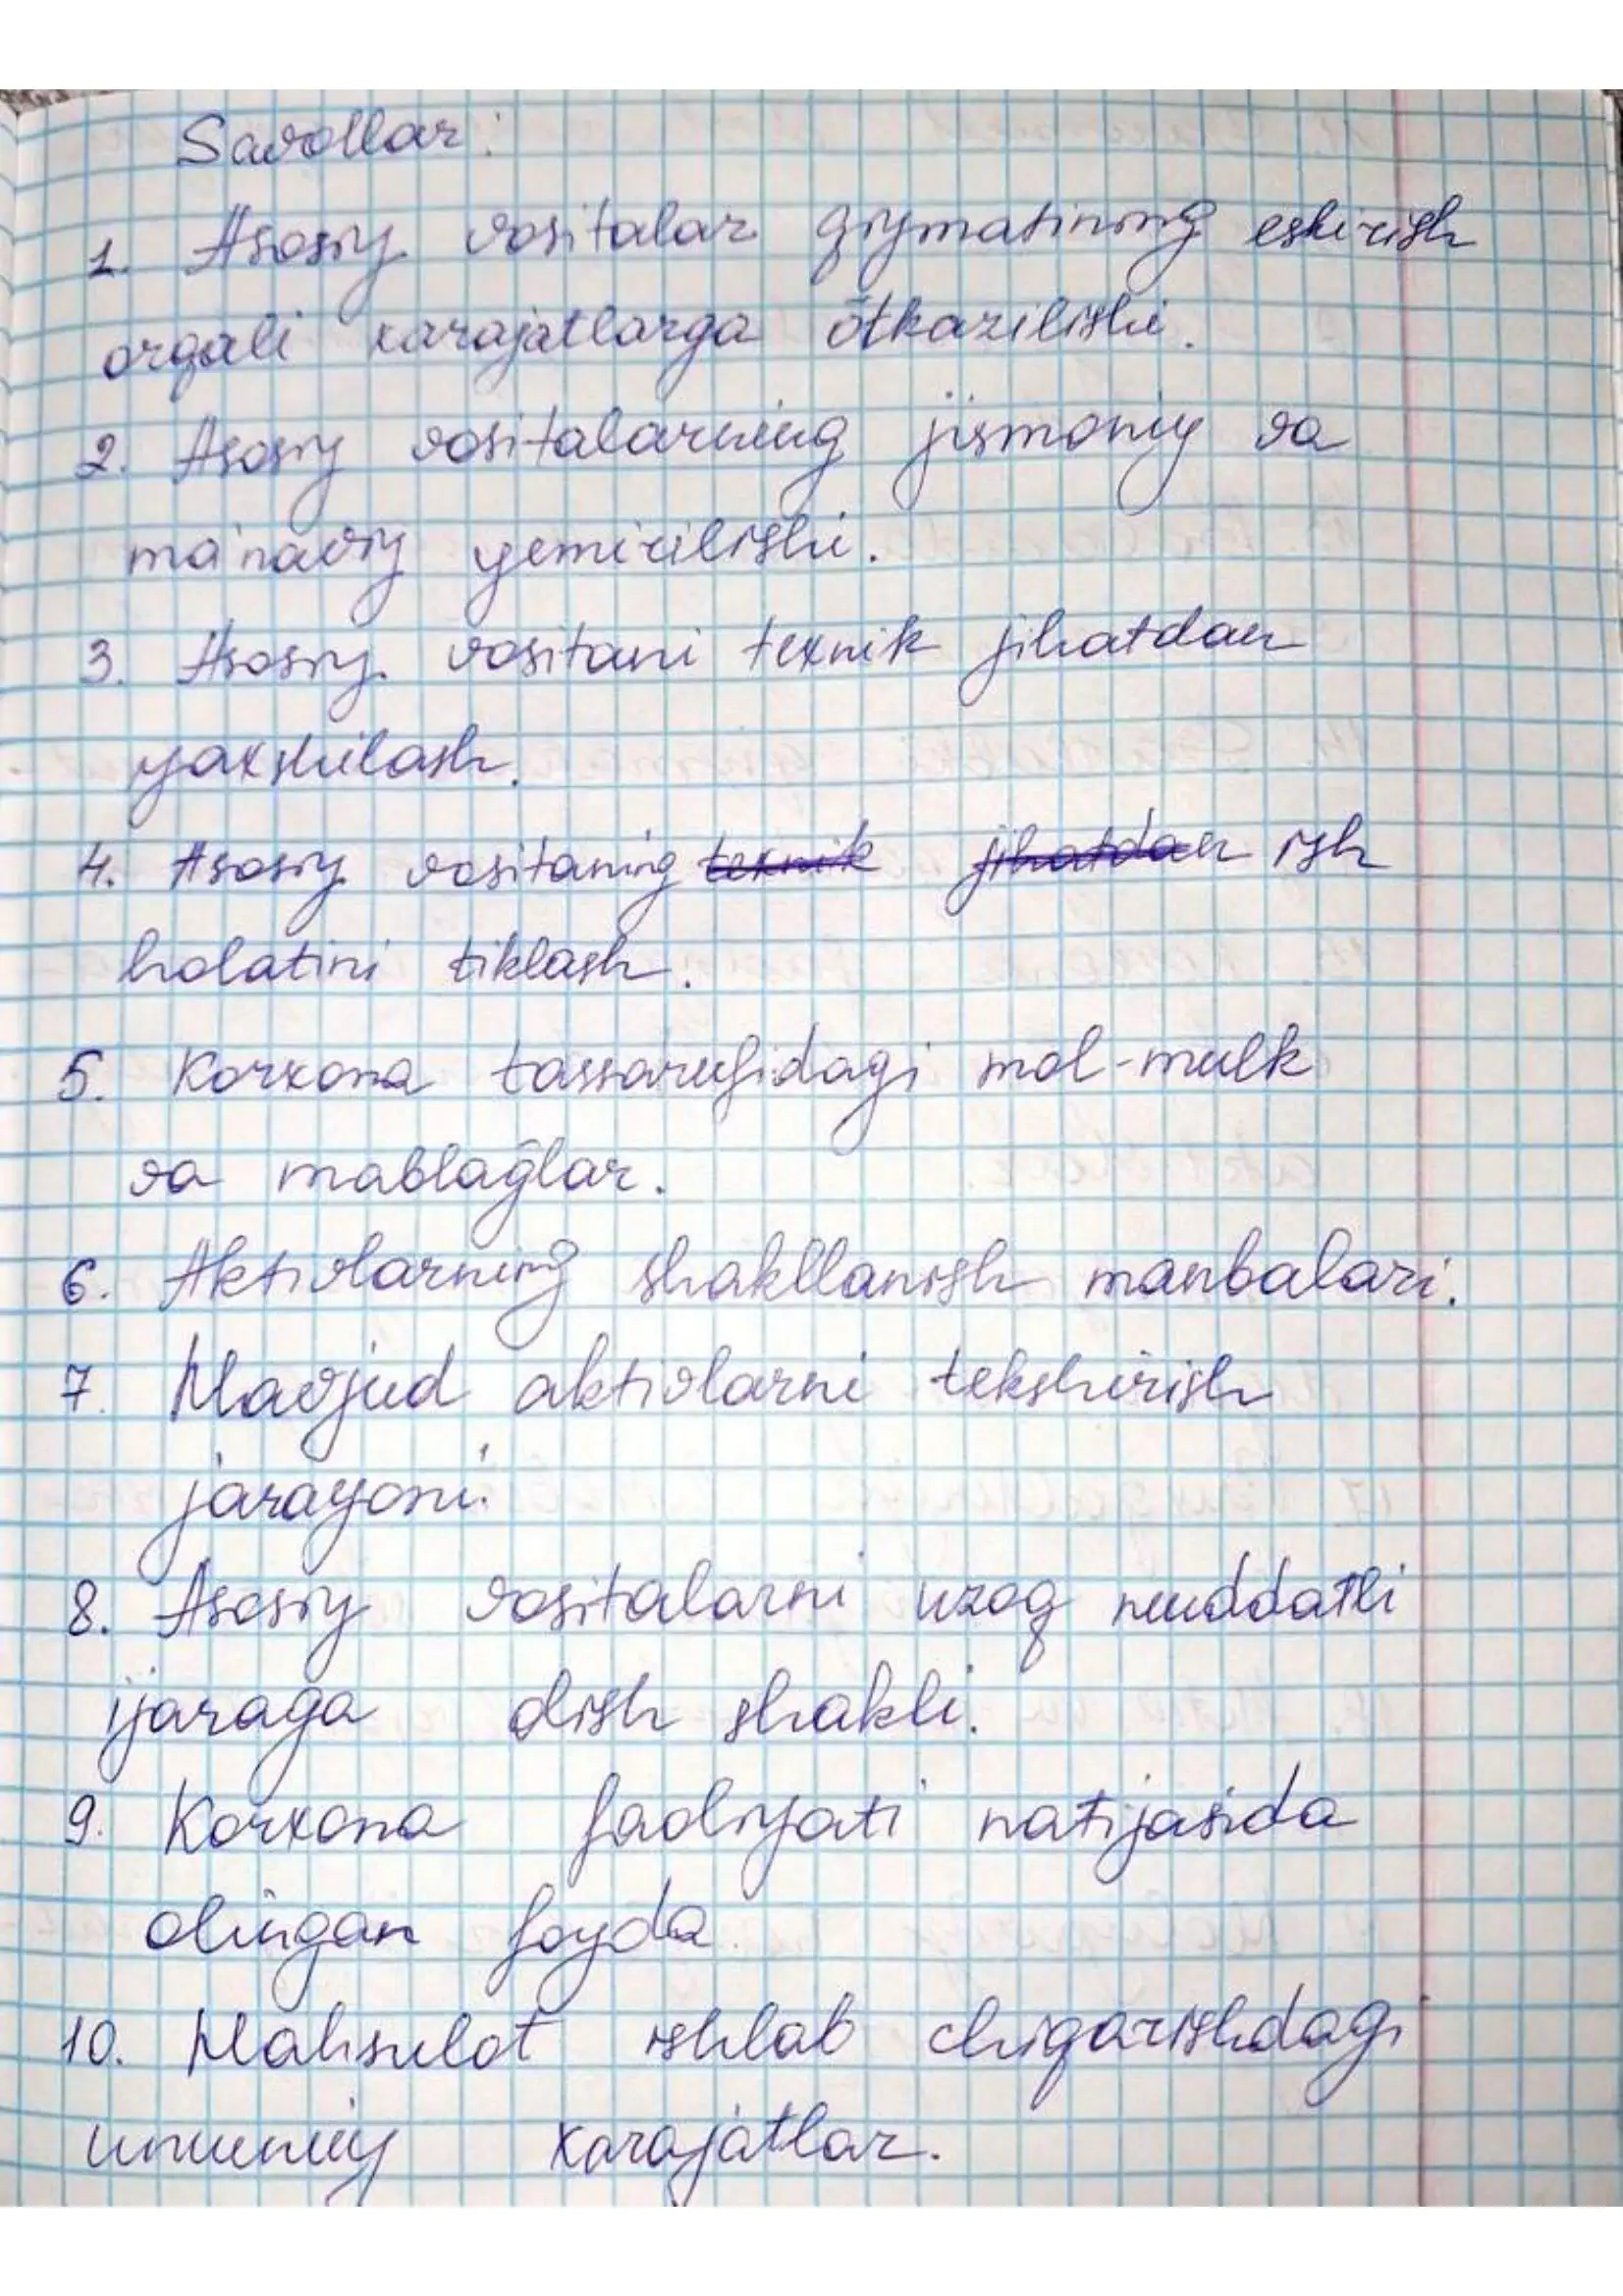 Savollar:
1. Asosiy vositalar qiymatining eskirish
orqali xarajatlarga õtkazilishi.
2. Asosiy vositalarning jismoniy va
ma'naviy yemirilishi.
3. Asosiy vositani texnik jihatdan
yaxshilash.
4. Asosiy vositaning texnik jihatdan ish
holatini tiklash.
5. Korxona tassarufidagi mol-mulk
va mablağlar.
6. Aktivlarning shakllanish manbalari.
7. Mavjud aktivlarni tekshirish
jarayoni.
8. Asosiy vositalarni uzoq muddatli
ijaraga olish shakli.
9. Korxona faoliyati natijasida
olingan foyda.
10. Mahsulot ishlab chiqarishdagi
umumiy xarajatlar.